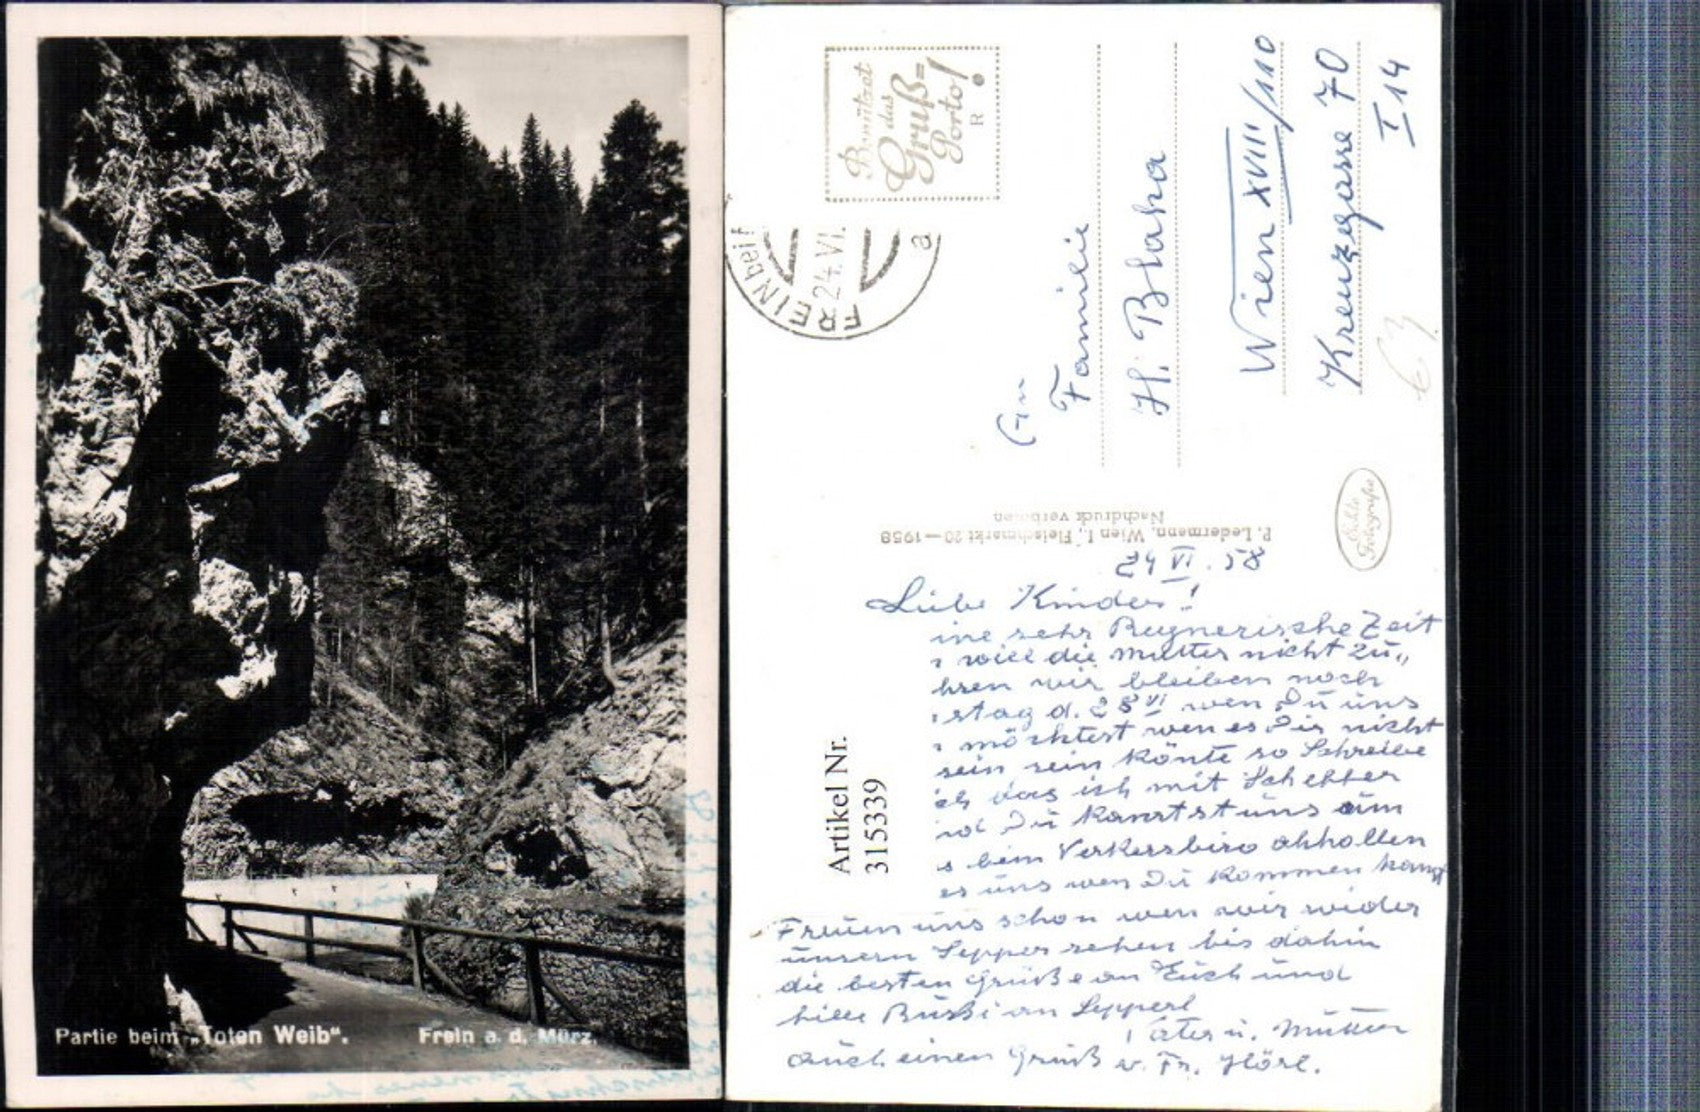 Partie beim „Toten Weib“.
Frein a. d. Mürz.
Benützet
das
Gruß=
Porto!
R
FREIN bei
24.VI.
a
An
Familie
H. Blaha
Wien XVIII/110
Kreuzgasse 70
I 14
63
P. Ledermann, Wien I., Fleischmarkt 20—1958
Nachdruck verboten
Echte
Fotografie
Artikel Nr.
315339
24 VI. 58
Liebe Kinder!
ine sehr Regnerische Zeit
will die Mutter nicht zu„
hren wir bleiben noch
stag d. 28 VI wen Du uns
möchtest wen es Dir nicht
sein sein könte so Schreibe
ch das ich mit
Du kanstst uns um
s beim Verkersbiro abhollen
es uns wen Du kommen kanst
Freuen uns schon wen wir wider
unsern Sepper sehen bis dahin
die besten Grüße an Euch und
fille Bussi an Sepperl
Vater u. Mutter
auch einen Gruß v. Fr. Hörl.